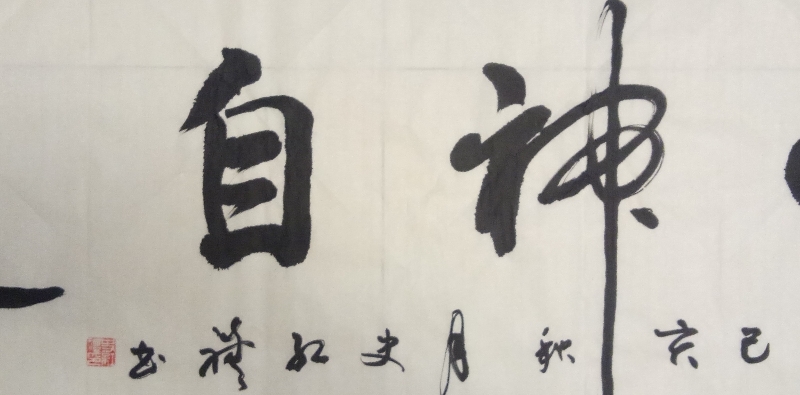 神自
己亥秋月史红礼书